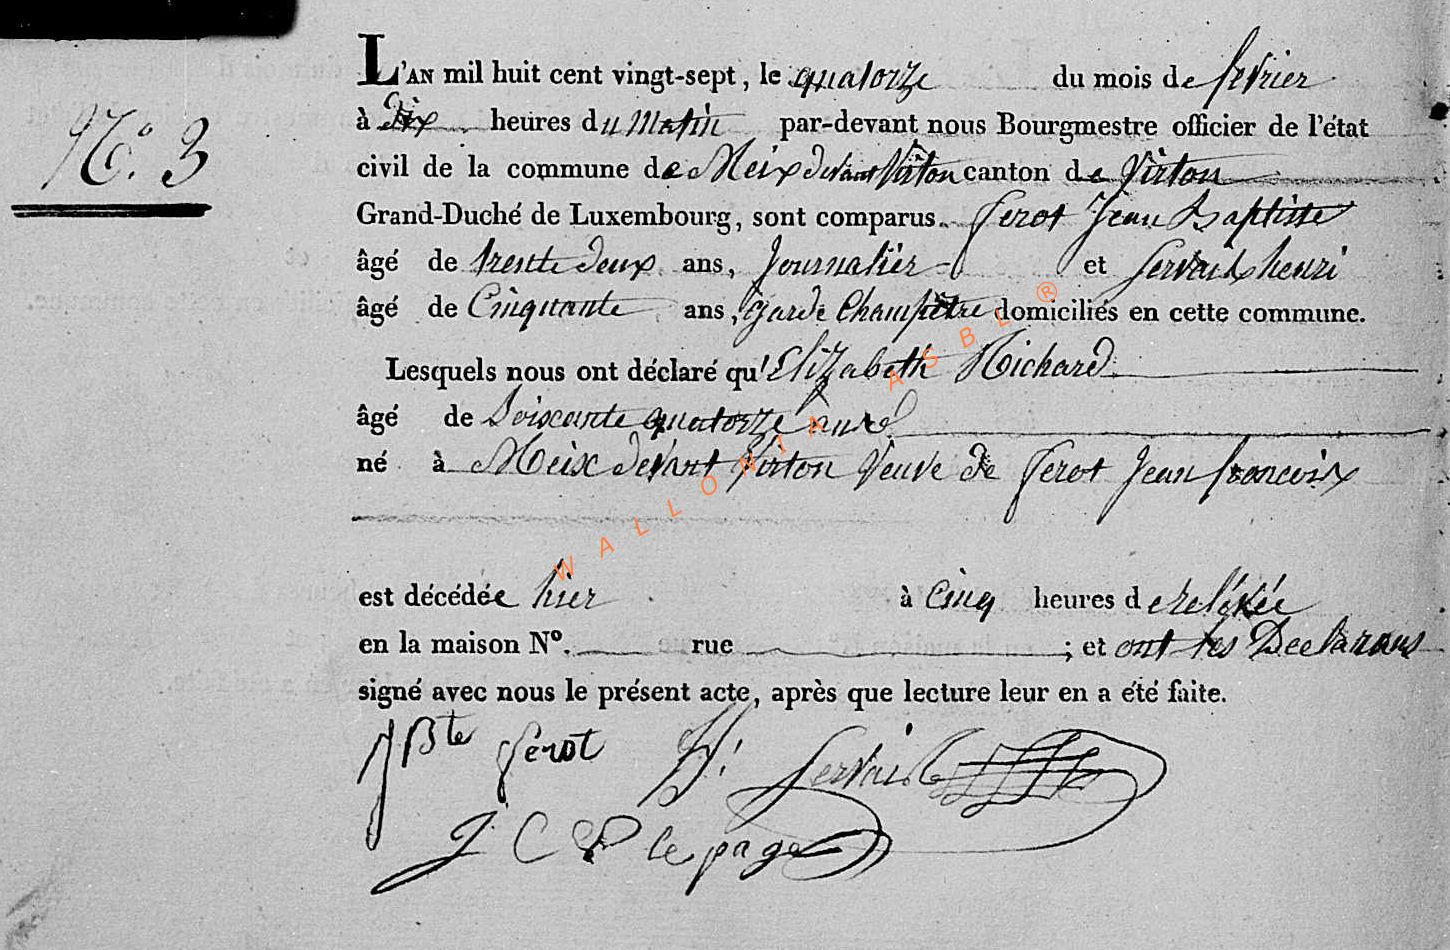 N.o 3
L'AN mil huit cent vingt-sept, le quatorze du mois de fevrier
à Dix heures du Matin par-devant nous Bourgmestre officier de l'état
civil de la commune de Meix devant Virton canton de Virton
Grand-Duché de Luxembourg, sont comparus ferot Jean Baptiste
âgé de trente deux ans, Journalier et Servais henri
âgé de Cinquante ans, Garde Champêtre domiciliés en cette commune.
Lesquels nous ont déclaré qu'Elizabeth Richard
âgé de Soixante quatorze
né à Meix devant Virton Veuve de ferot Jean francois
est décédée hier à Cinq heures de relévée
en la maison N°. rue ; et ont les Declarans
signé avec nous le présent acte, après que lecture leur en a été faite.
JBte ferot H. Servais
J C lepage
WALLONIA ASBL ®